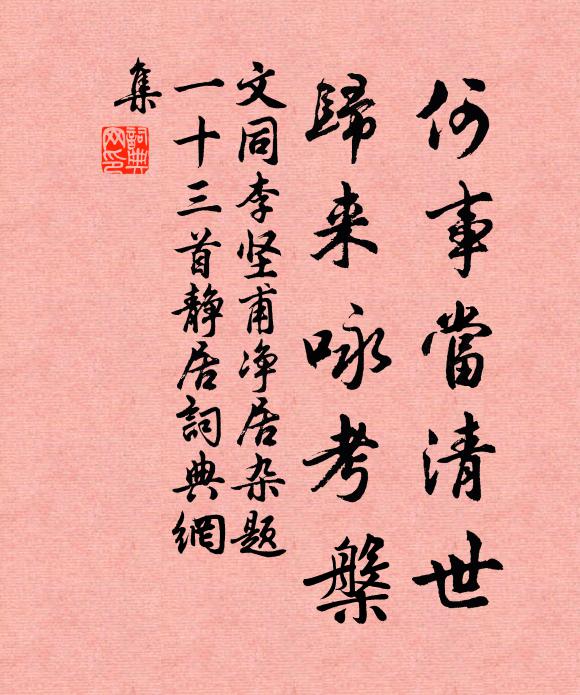 何事當清世
歸来咏考槃
文同李坚甫净居杂题
一十三首靜居詞典網
集
詞典
网印